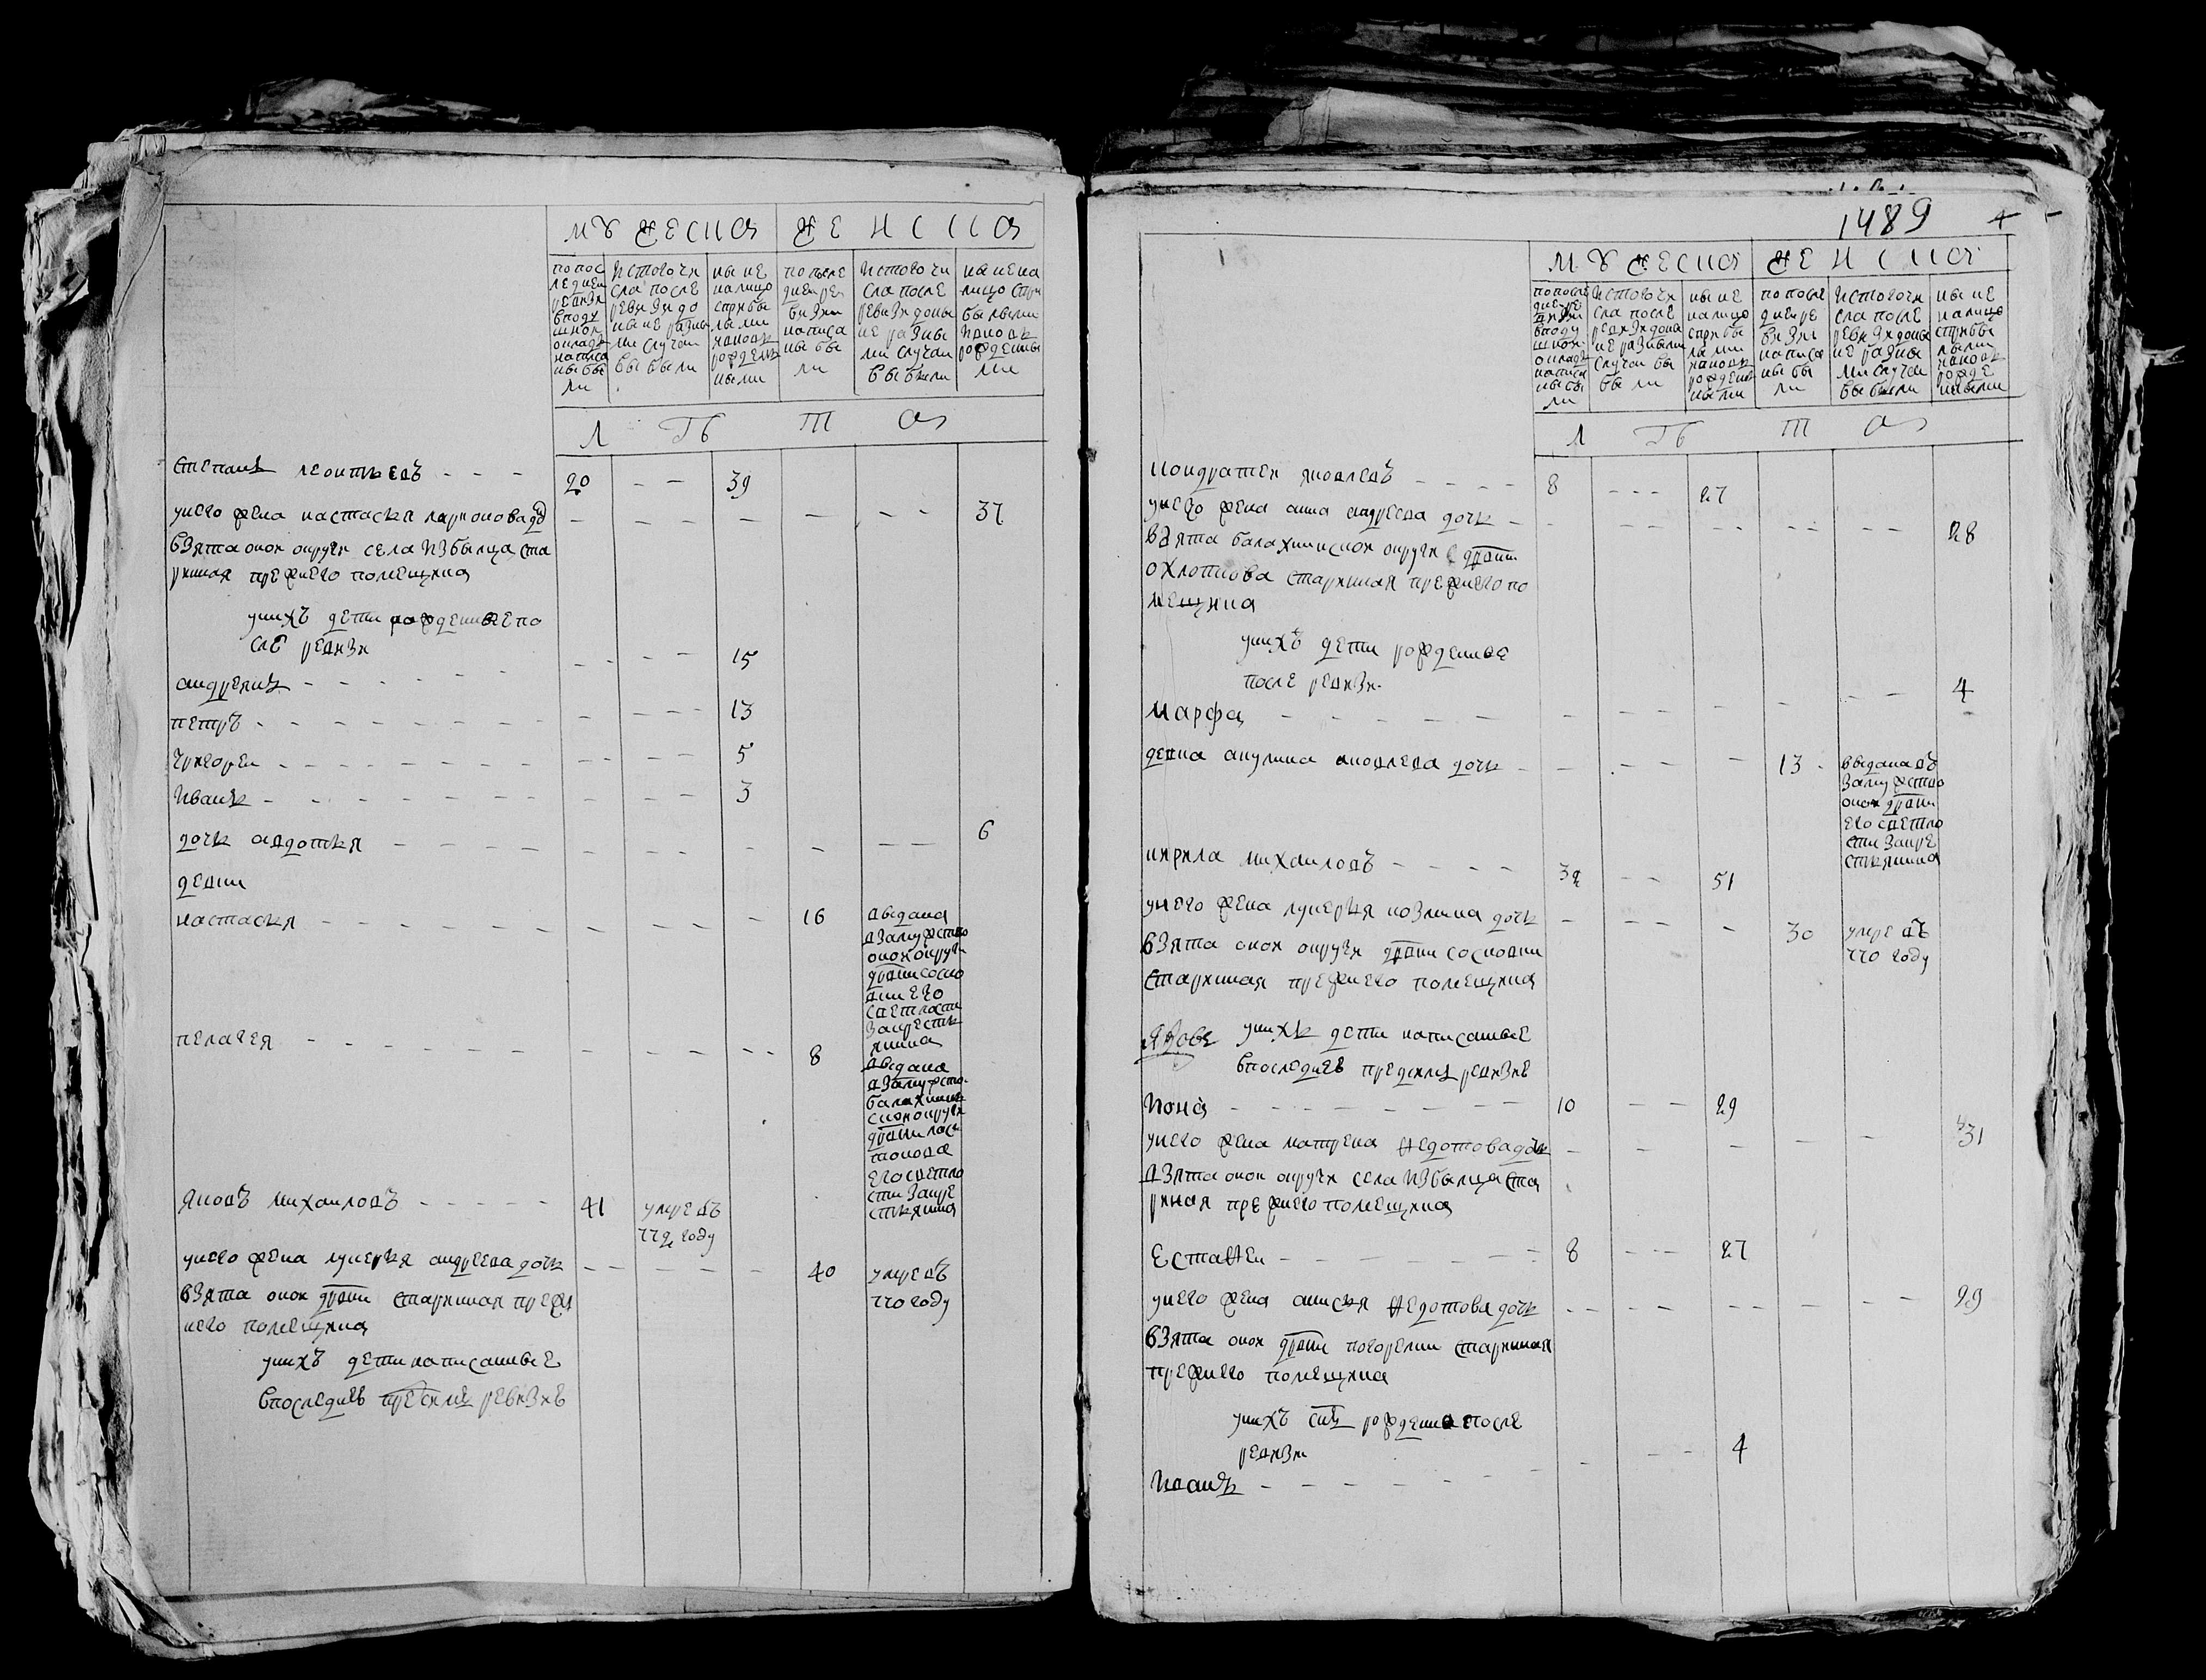 мужеска
женска
по пос
ледней
ревизи
в поду
шной
окладъ
написа
ны бы
ли
ис того чи
сла после
ревизи до
ныне разны
ми случаи
выбыли
ныне
на лицо
с прибы
лыми
и вновь
рожденъ
ными
по после
дней ре
визии
написа
ны бы
ли
ис того чи
сла после
ревизи доны
не разны
ми случаи
выбыли
ныне на
лицо с при
былыми
и вновь
рожденны
ми
л ѣ т а
степанъ леонтьевъ 20 39
у него жена настасья ларионова до 37
взята окои округи села избыльца ста
ринная прежнего помещика
у них детi рожденные по
сле ревизи
андреянъ 15
петръ 13
григореи 5
иванъ 3
дочь авдотья 6
девки
настасья 16 выдана
в замужство
окои округи
дрвни сосно
вки его
светлости
за кресть
янина
пелагея 8 выдана
в замужство
балахнин
скои округи
дрвни лос
його светло
сти за кре
стьянина
яковъ михаиловъ 41 умре въ
772 году
у него жена лукерья андреева дочь 40 умре въ
770 году
взята окои дрвни старинная преж
него помещика
у нихъ дети написанные
в последней пред симъ ревизие
1489
4
мужеска
женска
по после
дней ре
визии
в поду
шной
окладъ
написа
ны бы
ли
ис того чи
сла после
ревизи доны
не разными
случаи вы
были
ныне
на лицо
с прибы
лыми
и вновь
рожден
ными
по после
дней ре
визии
написа
ны бы
ли
ис того чи
сла после
ревизи доны
не разны
ми случаи
выбыли
ныне
на лицо
с прибы
лыми
и вновь
рожде
нными
л ѣ т а
кондратеи яковлевъ 8 27
у него жена анна андреева дочь 28
взята балахнинскои округи з дрвни
охлопкова старинная прежнего по
мещика
у нихъ дети рожденные
после ревизи
марфа 4
девка акулина яковлева дочь 13 выдана въ
замужство
окои дрвни
его светло
сти за кре
стьянина
кирила михаиловъ 32 51
у него жена лукерья козмина дочь 30 умре въ
770 году
взята окои округи дрвни сосновки
старинная прежнего помещика
у нихъ дети написанные
в последней пред симъ ревизие
иона 10 29
у него жена матрена федотова дочь 31
взята окои округи села избыльца ста
ринная прежнего помещика
естафеи 8 27
у него жена анисья федотова дочь 29
взята окои дрвни погорелки старинная
прежнего помещика
у нихъ снъ рожденна после
ревизи
иванъ 4